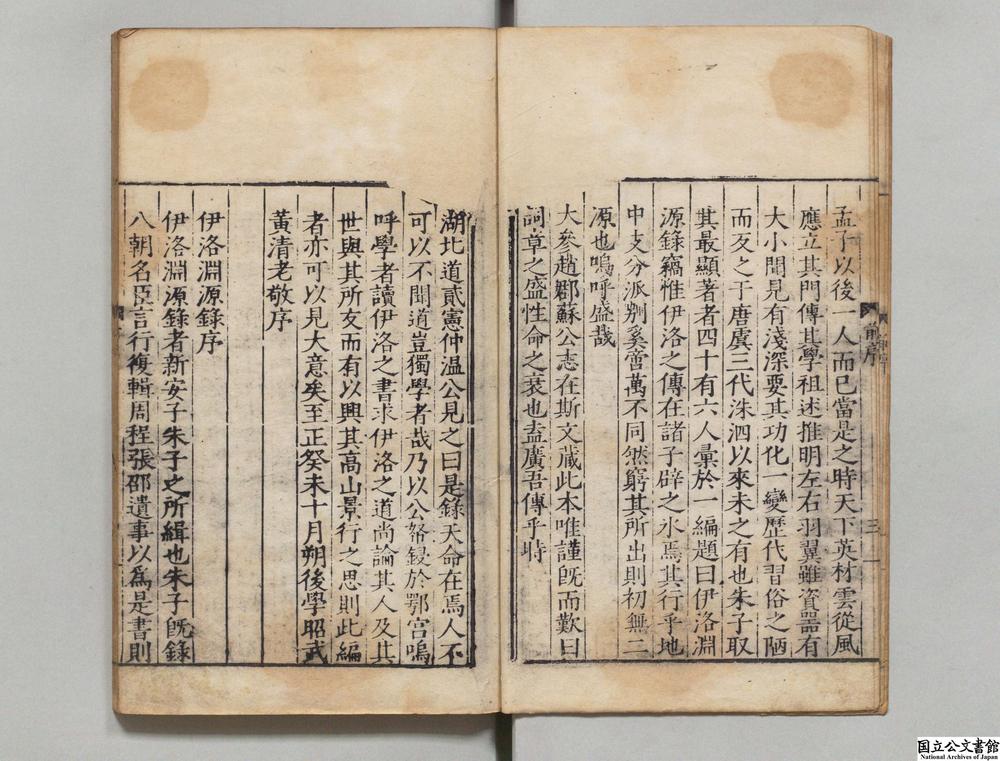 孟子以後一人而已當是之時天下英材雲從風
應立其門傳其學祖述推明左右羽翼雖資器有
大小聞見有淺深要其功化一變歷代習俗之陋
而反之于唐虞三代洙泗以來未之有也朱子取
其最顯著者四十有六人彙於一編題曰伊洛淵
源錄竊惟伊洛之傳在諸子辟之水焉其行乎地
中支分派別奚啻萬不同然窮其所出則初無二
源也嗚呼盛哉
大參趙郡蘇公志在斯文蔵此本唯謹旣而歎曰
詞章之盛性命之衰也盍廣吾傳乎時
前序
三
湖北道貳憲仲温公見之曰是錄天命在焉人不
可以不聞道豈獨學者哉乃以公帑鋟於鄂宫嗚
呼學者讀伊洛之書求伊洛之道尚論其人及其
世與其所友而有以興其高山景行之思則此編
者亦可以見大意矣至正癸未十月朔後學昭武
黃清老敬序
伊洛淵源錄序
伊洛淵源錄者新安子朱子之所緝也朱子旣錄
八朝名臣言行複輯周程張邵遺事以爲是書則
国立公文書館
National Archives of Japan